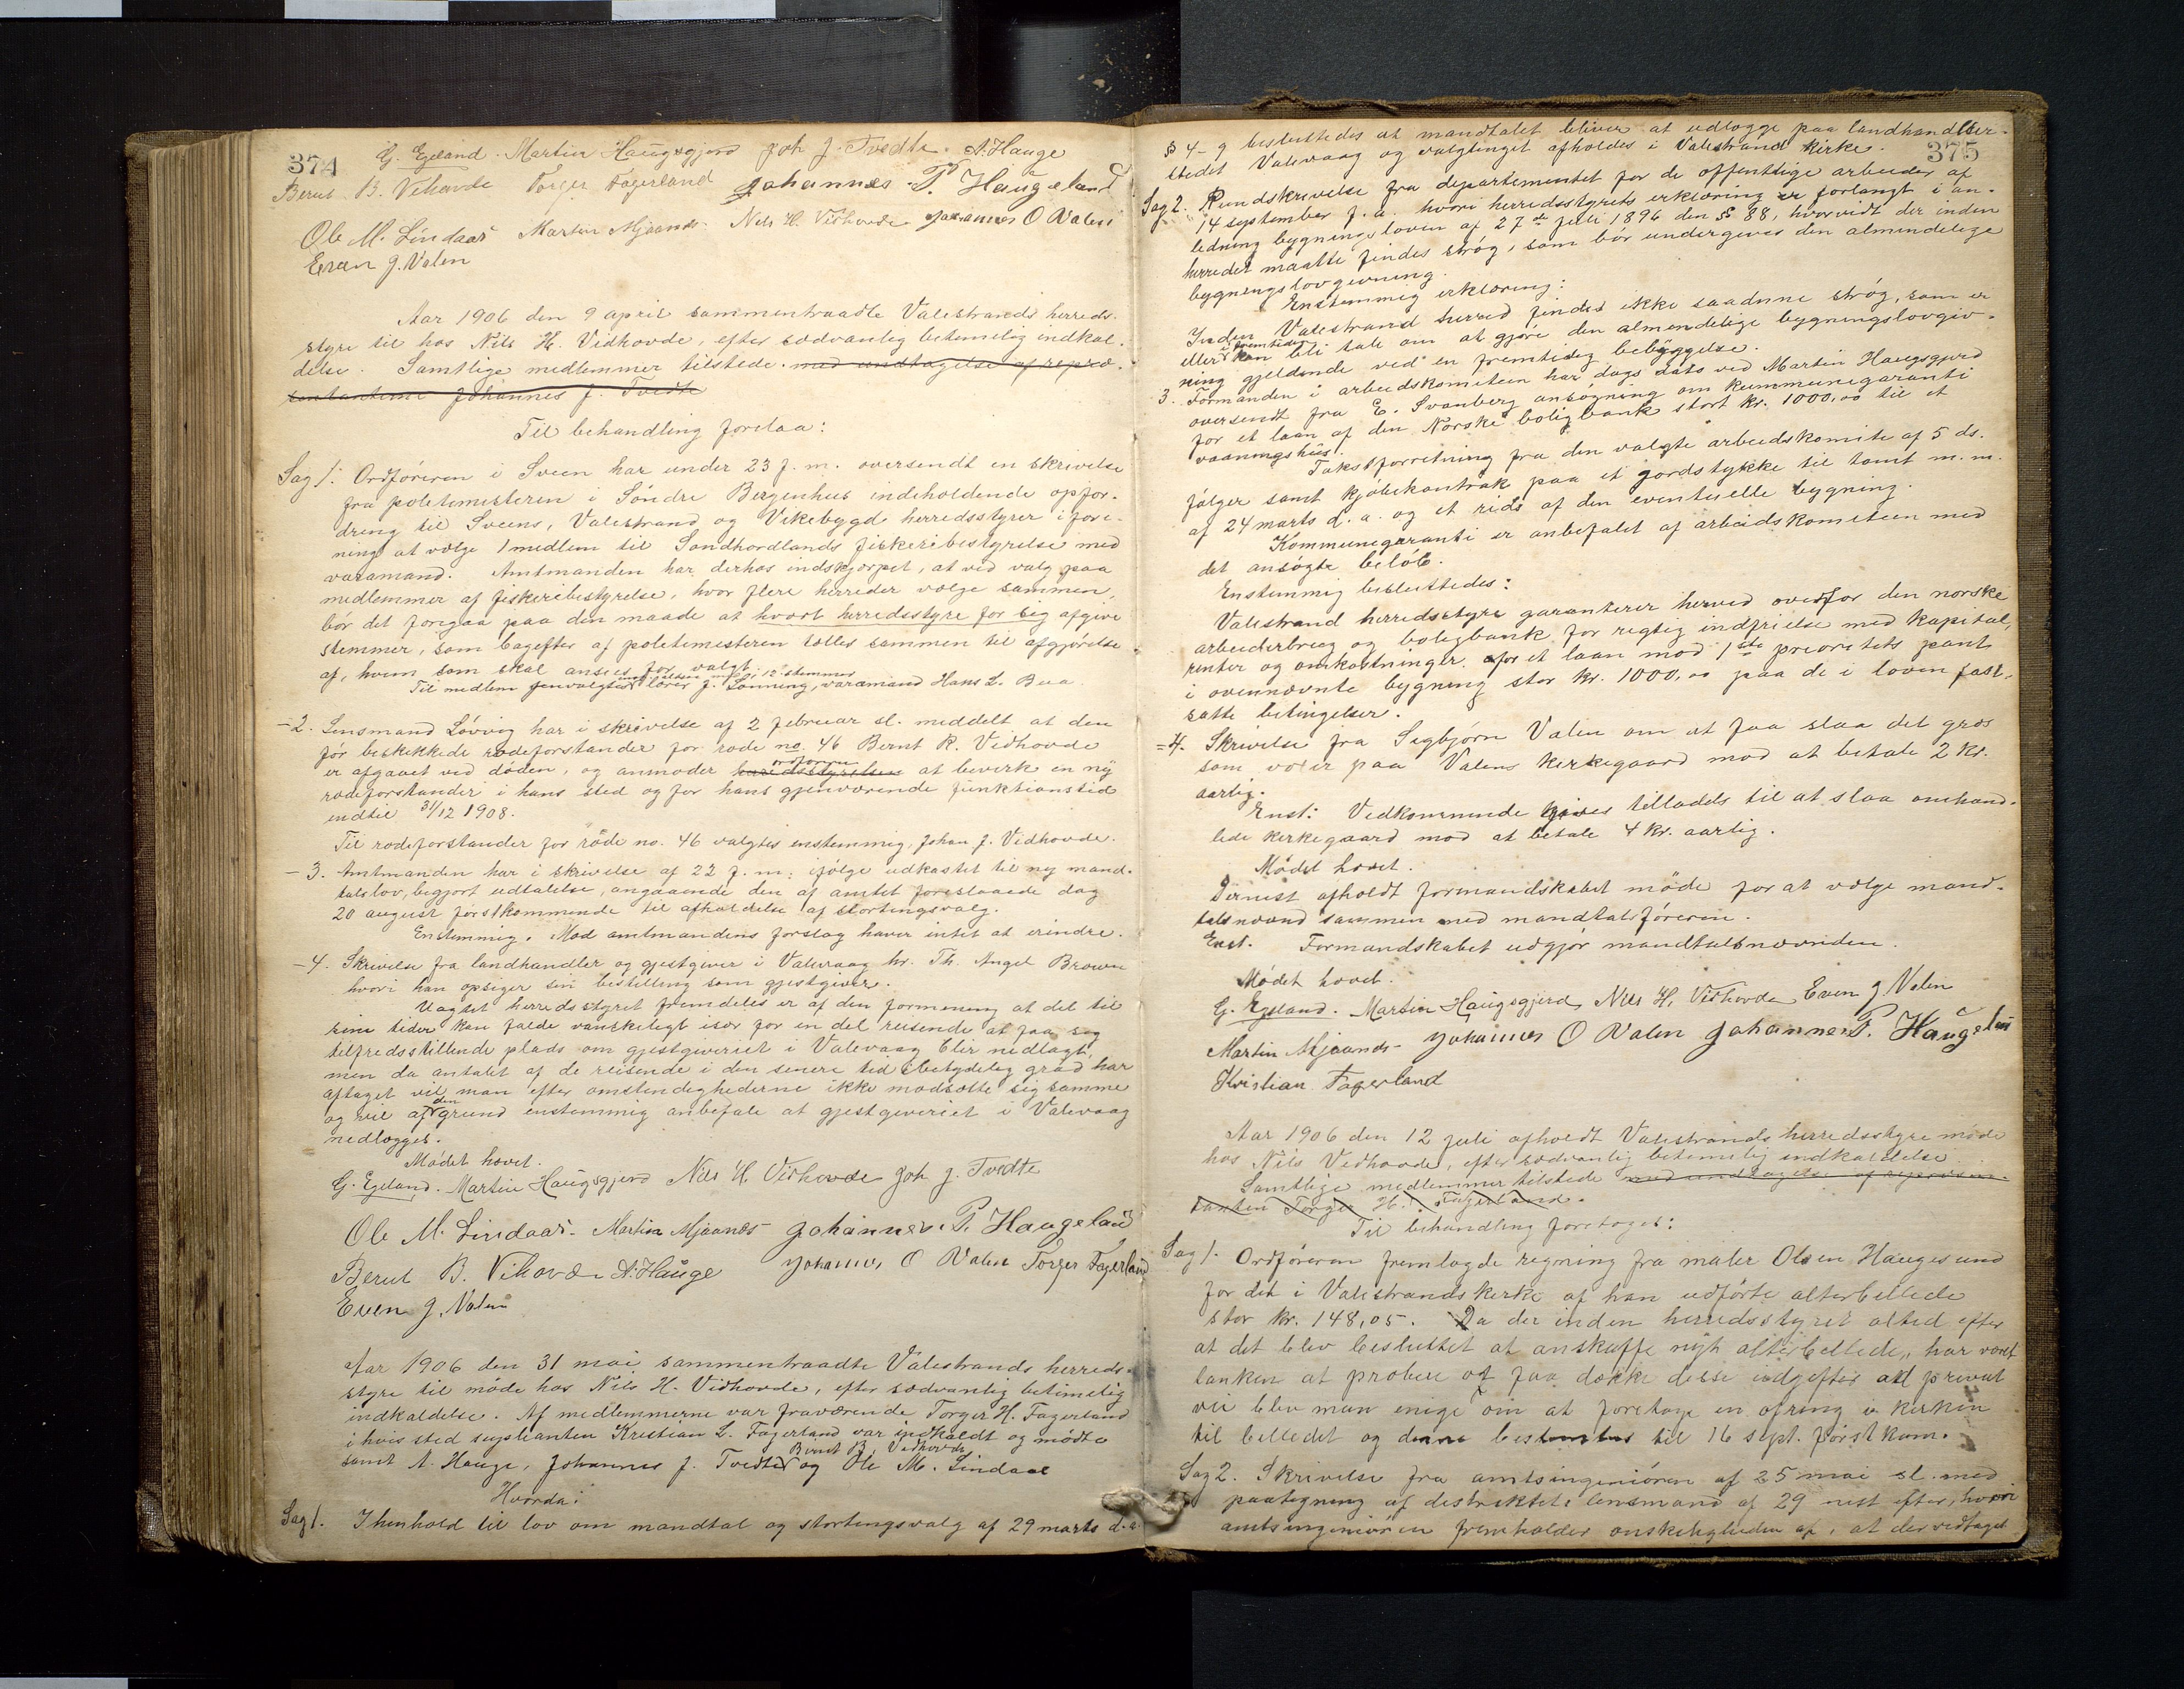 374
G. Egeland. Martin Haugsgjerd Joh J. Tvedte. A. Hauge
Bernt B. Vihovde Torger Fagerland Johannes P. Haugeland
Ole M. Lindaas Martin Mjaanes Nils H. Vidhovde Johannes O Valen
Even J. Valen
Aar 1906 den 9 april sammentraadte Valestrands herreds-
styre til hos Nils H. Vidhovde, efter sædvanlig betimelig indkal-
delse. Samtlige medlemmer tilstede. med undtagelse af repræ-
sentanterne Johannes J. Tvedte
Til behandling forelaa:
Sag 1. Ordføreren i Sveen har under 23 f. m. oversendt en skrivelse
fra politimesteren i Søndre Bergenhus indeholdende opfor-
dring til Sveens, Valestrand og Vikebygd herredsstyrer i fore-
ning at vælge 1 medlem til Søndhordlands fiskeribestyrelse med
varamand. Amtmanden har derhos indskjærpet, at ved valg paa
medlemmer af fiskeribestyrelse, hvor flere herreder vælge sammen,
bør det foregaa paa den maade at hvort herredsstyre for sig afgive
stemmer, som bagefter af politimesteren tælles sammen til afgjørelse
af, hvem som skal ansees for valgt.
12 stemmer
Til medlem gjenvalgtes lærer J. Lønning, varamand Hans L. Bua.
- 2. Lensmand Løvvig har i skrivelse af 2 februar sl. meddelt at den
før beskikkede rodeforstander for rode no. 46 Bernt R. Vidhovde
ordføreren
er afgaaet ved døden, og anmoder herredsstyrelsen at bevirke en ny
rodeforstander i hans sted og for hans gjenværende funktionstid
indtil 31/12 1908.
Til rodeforstander for rode no. 46 valgtes enstemmig, Johan J. Vidhovde.
- 3. Amtmanden har i skrivelse af 22 f. m. ifølge udkastet til ny mand-
talslov, begjært udtalelse, angaaende den af amtet foreslaaede dag
20 august førstkommende til afholdelse af stortingsvalg.
Enstemmig. Mod amtmandens forslag haves intet at erindre.
- 4. Skrivelse fra landhandler og gjestgiver i Valevaag hr. Th. Angel Brown
hvori han opsiger sin bestilling som gjestgiver.
Uagtet herredsstyret fremdeles er af den formening at det til
sine tider kan falde vanskeligt især for en del reisende at faa sig
tilfredsstillende plads om gjestgiveriet i Valevaag blir nedlagt,
men da antallet af de reisende i den senere tid i betydelig grad har
aftaget vil man efter omstendighederne ikke modsætte sig samme
den
og vil af grund enstemmig anbefale at gjestgiveriet i Valevaag
nedlægges.
Mødet hævet.
G. Egeland. Martin Haugsgjerd Nils H. Vidhovde Joh J. Tvedte
Ole M. Lindaas. Martin Mjaanes Johannes P. Haugeland
Bernt B. Vihovde A. Hauge Johannes O Valen Torger Fagerland
Even J. Valen
Aar 1906 den 31 mai sammentraadte Valestrands herreds-
styre til møde hos Nils H. Vidhovde, efter sædvanlig betimelig
indkaldelse. Af medlemmerne var fraværende Torger H. Fagerland
i hvis sted suppleanten Kristian L. Fagerland var indkaldt og mødte
Bernt B. Vidhovde
samt A. Hauge, Johannes J. Tvedte og Ole M. Lindaas
Hvorda:
Sag 1. I henhold til lov om mandtal og stortingsvalg af 29 marts d. a.
375
§ 4-9 besluttedes at mandtalet bliver at udlægge paa landhandler-
stedet Valevaag og valgtinget afholdes i Valestrand kirke.
Sag 2. Rundskrivelse fra departementet for de offentlige arbeider af
14 september f. a. hvori herredsstyrets erklæring er forlangt i an-
ledning bygningsloven af 27de juli 1896 den § 88, hvorvidt der inden
herredet maatte findes strøg, som bør undergives den almindelige
bygningslovgivning.
Enstemmig erklæring:
Inden Valestrand herred findes ikke saadanne strøg, som er
i fremtiden
eller kan bli tale om at gjøre den almindelige bygningslovgiv-
ning gjeldende ved en fremtidig bebyggelse.
3. Formanden i arbeidskomiteen har dags dato ved Martin Haugsgjerd
oversendt fra E. Svanberg ansøgning om kommunegaranti
for et laan af den Norske boligbank stort kr. 1000,00 til et
vaaningshus.
Takstforretning fra den valgte arbeidskomite af 5 ds.
følger samt kjøbekontrakt paa et jordstykke til tomt m. m.
af 24 marts d. a. og et rids af den eventuelle bygning.
Kommunegaranti er anbefalet af arbeidskomiteen med
det ansøgte beløb.
Enstemmig besluttedes:
Valestrand herredsstyre garanterer herved overfor den norske
arbeiderbrug og boligbank for rigtig indfrielse med kapital,
renter og omkostninger. for et laan mod 1ste prioritets pant
i ovennævnte bygning stor kr. 1000,00 paa de i loven fast-
satte betingelser.
= 4. Skrivelse fra Sigbjørn Valen om at faa slaa det græs
som voxer paa Valens kirkegaard mod at betale 2 kr.
aarlig.
Enst: Vedkommende gives tilladels til at slaa omhand-
lede kirkegaard mod at betale 4 kr. aarlig.
Mødet hævet.
Dernest afholdt formandskabet møde for at vælge mand-
talsnævnd sammen med mandtalsføreren.
Enst. Formandskabet udgjør mandtalsnævnden.
Mødet hævet.
G. Egeland. Martin Haugsgjerd, Nils H. Vidhovde Even J Valen
Martin Mjaanes- Johannes O Valen Johannes P. Haugeland
Kristian Fagerland
Aar 1906 den 12 juli afholdt Valestrands herredsstyre møde
hos Nils Vidhovde, efter sædvanlig betimelig indkaldelse.
Samtlige medlemmer tilstede med undtagelse af repræsen-
tanten Torger H. Fagerland.
Til behandling foretoges:
Sag 1. Ordføreren fremlagde regning fra maler Olsen Haugesund
for det i Valestrands kirke af han udførte alterbillede
stor kr. 148,05. Da der inden herredsstyret altid efter
at det blev besluttet at anskaffe nyt alterbillede, har været
tanken at probere at faa dække disse udgifter ad privat
vei blev man enige om at foretage en ofring i kirken
til billedet og denne bestemtes til 16 sept. førstkom.
Sag 2. Skrivelse fra amtsingeniøren af 25 mai sl. med
paategning af distriktets lensmand af 29 nest efter, hvori
amtsingeniøren fremholder ønskeligheden af, at der vedtages